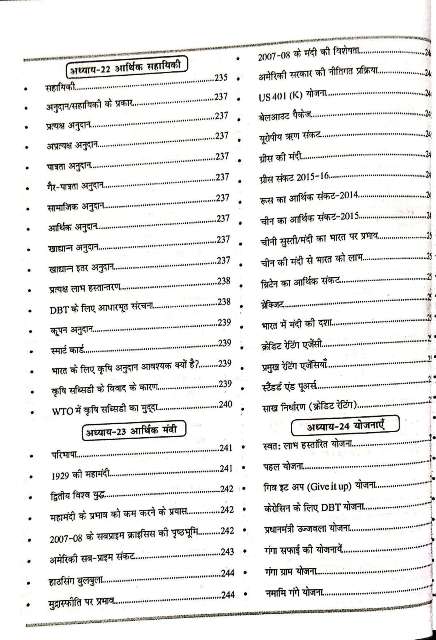 अध्याय-22 आर्थिक सहायिकी
• सहायिकी 235
• अनुदान/सहायिकी के प्रकार 237
• प्रत्यक्ष अनुदान 237
• अप्रत्यक्ष अनुदान 237
• पात्रता अनुदान 237
• गैर-पात्रता अनुदान 237
• सामाजिक अनुदान 237
• आर्थिक अनुदान 237
• खाद्यान्न अनुदान 237
• खाद्यान्न इतर अनुदान 237
• प्रत्यक्ष लाभ हस्तान्तरण 238
• DBT के लिए आधारभूत संरचना 238
• कूपन अनुदान 239
• स्मार्ट कार्ड 239
• भारत के लिए कृषि अनुदान आवश्यक क्यों है? 239
• कृषि सब्सिडी के विवाद के कारण 239
• WTO में कृषि सब्सिडी का मुद्दा 240
अध्याय-23 आर्थिक मंदी
• परिभाषा 241
• 1929 की महामंदी 241
• द्वितीय विश्व युद्ध 242
• महामंदी के प्रभाव को कम करने के प्रयास 242
• 2007-08 के सबप्राइम क्राइसिस की पृष्ठभूमि 242
• अमेरिकी सब-प्राइम संकट 243
• हाउसिंग बुलबुला 244
• मुद्रास्फीति पर प्रभाव 244
• 2007-08 के मंदी की विशेषता
• अमेरिकी सरकार की नीतिगत प्रक्रिया
• US 401 (K) योजना
• बेलआउट पैकेज
• यूरोपीय ऋण संकट
• ग्रीस की मंदी
• ग्रीस संकट 2015-16
• रूस का आर्थिक संकट-2014
• चीन का आर्थिक संकट-2015
• चीनी सुस्ती/मंदी का भारत पर प्रभाव
• चीन की मंदी से भारत को लाभ
• ब्रिटेन का आर्थिक संकट
• ब्रेक्जिट
• भारत में मंदी की दशा
• क्रेडिट रेटिंग एजेंसी
• प्रमुख रेटिंग एजेंसियाँ
• स्टैंडर्ड एंड पूअर्स
• साख निर्धारण (क्रेडिट रेटिंग)
अध्याय-24 योजनाएँ
• स्वत: लाभ हस्तांरित योजना
• पहल योजना
• गिव इट अप (Give it up) योजना
• केरोसिन के लिए DBT योजना
• प्रधानमंत्री उज्जवला योजना
• गंगा सफाई की योजनायें
• गंगा ग्राम योजना
• नमामि गंगे योजना